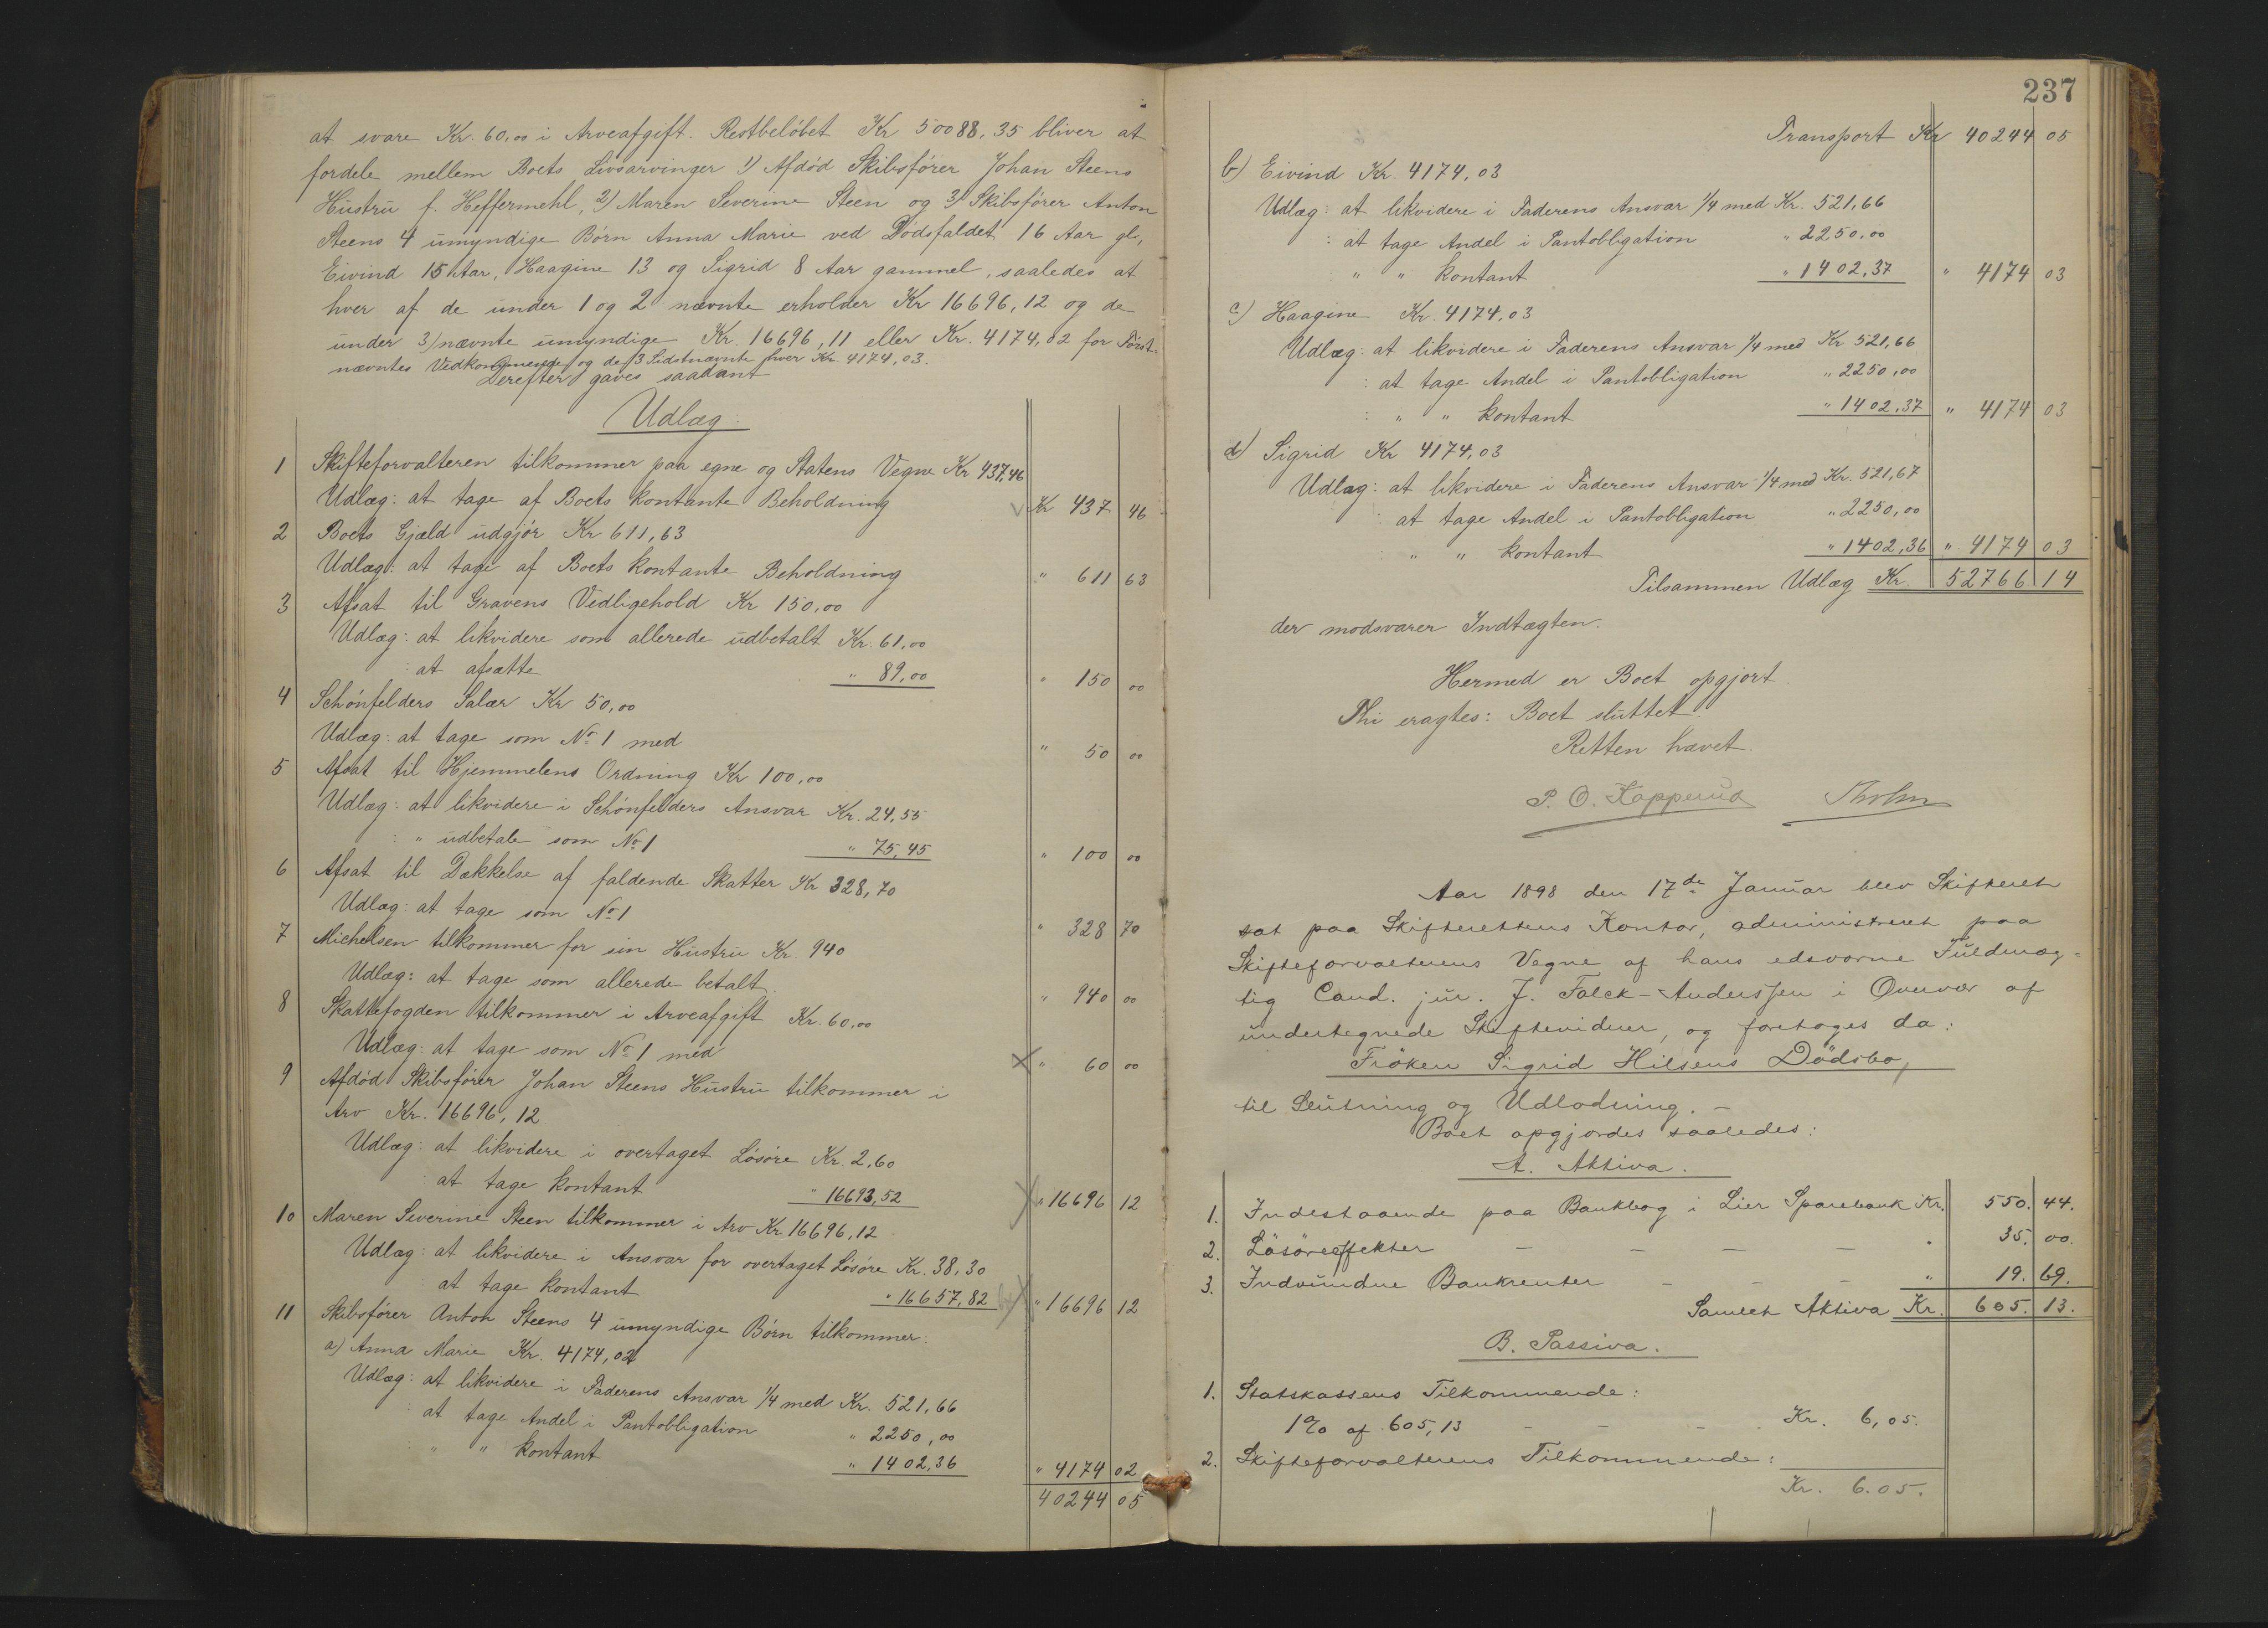 at svare Kr. 60,00 i Arveafgift. Restbeløbet Kr 50088,35 bliver at
fordele mellem Boets Livsarvinger 1) Afdød Skibsfører Johan Steens
Hustru f. Heffermehl, 2) Maren Severine Steen og 3) Skibsfører Anton
Steens 4 umyndige Børn Anna Marie ved Dødsfaldet 16 Aar gl.,
Eivind 15 Aar, Haagine 13 og Sigrid 8 Aar gammel, saaledes at
hver af de under 1 og 2 nævnte erholder Kr 16696,12 og de
under 3) nævnte umyndige Kr. 16696,11 eller Kr. 4174,02 for Først-
nævntes Vedkommende og de 3 Sidstnævnte hver Kr. 4174,03.
Derefter gaves saadant
Udlæg:
1 Skifteforvalteren tilkommer paa egne og Statens Vegne Kr 437,46
Udlæg: at tage af Boets kontante Beholdning Kr 437 46
2 Boets Gjæld udgjør Kr 611,63
Udlæg: at tage af Boets kontante Beholdning " 611 63
3 Afsat til Gravens Vedligehold Kr 150,00
Udlæg: at likvidere som allerede udbetalt Kr. 61,00
: at afsætte " 89,00 " 150 00
4 Schønfelders Salær Kr 50,00
Udlæg: at tage som No 1 med " 50 00
5 Afsat til Hjemmelens Ordning Kr 100,00
Udlæg: at likvidere i Schønfelders Ansvar Kr. 24,55
: " udbetale som No 1 " 75,45 " 100 00
6 Afsat til Dækkelse af faldende Skatter Kr 328,70
Udlæg: at tage som No 1 " 328 70
7 Michelsen tilkommer for sin Hustru Kr. 940
Udlæg: at tage som allerede betalt. " 940 00
8 Skattefogden tilkommer i Arveafgift Kr. 60,00
Udlæg: at tage som No 1 med " 60 00
9 Afdød Skibsfører Johan Steens Hustru tilkommer i
Arv Kr. 16696,12
Udlæg: at likvidere i overtaget Løsøre Kr. 2,60
: at tage kontant " 16693,52 " 16696 12
10 Maren Severine Steen tilkommer i Arv Kr 16696,12
Udlæg: at likvidere i Ansvar for overtaget Løsøre Kr. 38,30
: at tage kontant " 16657,82 " 16696 12
11 Skibsfører Anton Steens 4 umyndige Børn tilkommer:
a) Anna Marie Kr. 4174,02
Udlæg: at likvidere i Faderens Ansvar 1/4 med Kr. 521,66
: at tage Andel i Pantobligation " 2250,00
: " " kontant " 1402,36 " 4174 02
40244 05
237
Transport Kr 40244 05
b) Eivind Kr. 4174,03
Udlæg: at likvidere i Faderens Ansvar 1/4 med Kr. 521,66
: at tage Andel i Pantobligation " 2250,00
" " kontant " 1402,37 " 4174 03
c) Haagine Kr. 4174,03
Udlæg: at likvidere i Faderens Ansvar 1/4 med Kr 521,66
: at tage Andel i Pantobligation " 2250,00
: " " kontant " 1402,37 " 4174 03
d) Sigrid Kr 4174,03
Udlæg: at likvidere i Faderens Ansvar 1/4 med Kr. 521,67
: at tage Andel i Pantobligation " 2250,00
: " " kontant " 1402,36 " 4174 03
Tilsammen Udlæg Kr. 52766 14
der modsvarer Indtægten.
Hermed er Boet opgjort.
Thi eragtes: Boet sluttet.
Retten hævet.
P. O. Kopperud
Aar 1898 den 17de Januar blev Skifteret
sat paa Skifterettens Kontor, administreret paa
Skifteforvalterens Vegne af hans edsvorne Fuldmæg-
tig Cand. jur. J. Falck-Anderssen i Overvær af
undertegnede Skiftevidner, og foretoges da:
Frøken Sigrid Hilsens Dødsbo,
til Slutning og Udlodning. –
Boet opgjordes saaledes:
A. Aktiva.
1. Indestaaende paa Bankbog i Lier Sparebank Kr. 550. 44.
2. Løsøreeffekter – – – – " 35. 00.
3. Indvundne Bankrenter – – – " 19. 69.
Samlet Aktiva Kr. 605. 13.
B. Passiva.
1. Statskassens Tilkommende:
1% af 605,13 – – – Kr. 6,05.
2. Skifteforvalterens Tilkommende:
Kr. 6.05.